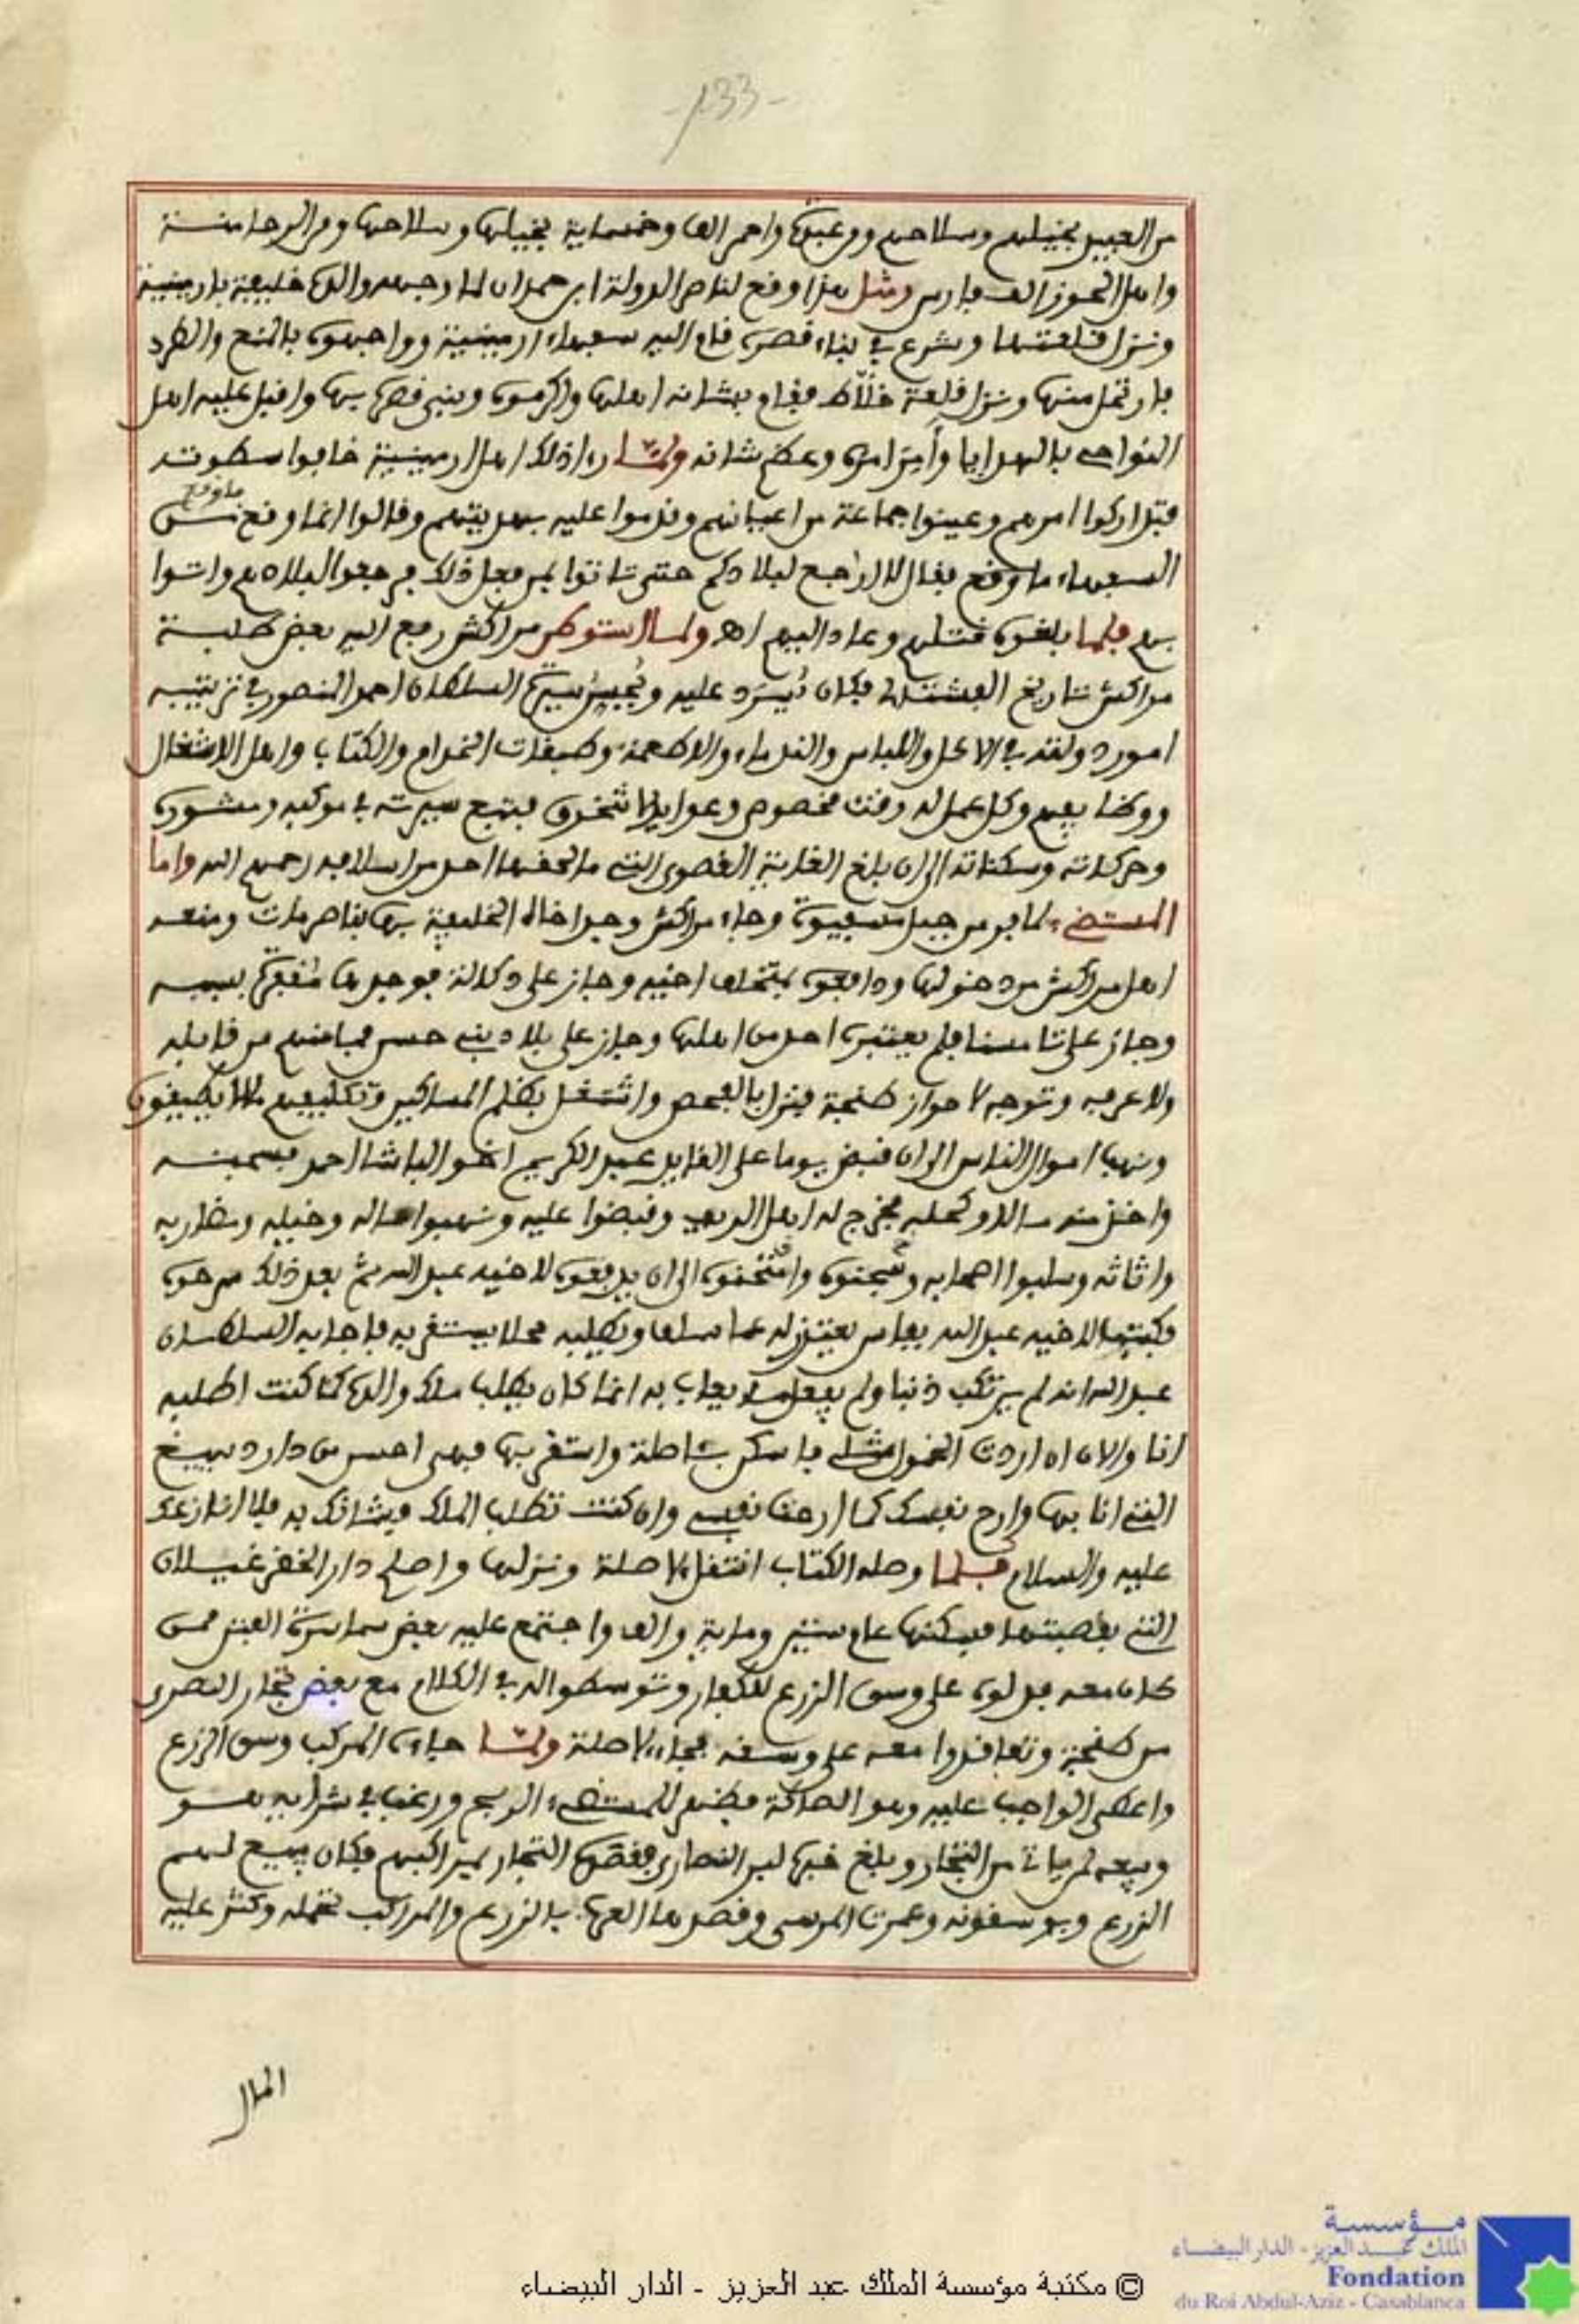 -133-
من العبيد بخيلهم وسلاحهم ومن عبدة واحمر الف وخمسماية بخيلها وسلاحها ومن الرحامنة
واهل الحوز الف فارس ومثل هذا وقع لناصر الدولة ابن حمدان لما وجهه والده خليفة بارمينية
ونزل قلعتها وشرع في بناء قصره قام اليه سعهاء ارمينية وواجهوه بالمنع والطرد
فارتحل منها ونزل قلعة خلاط فقام بشانه اهلها واكرموه وبنى قصره بها واقبل عليه اهل
النواحي بالهدايا وأمِرَ امره وعظم شانه ولما راى ذلك اهل ارمينية خافوا سطوته
فتداركوا امرهم وعينوا جماعة من اعيانهم وقدموا عليه بهديتهم وقالوا انما وقع من
ما وقع
السفهاء ما وقع فقال لا ارجع لبلادكم حتى تاتوا بمن فعل ذلك فرجعوا لبلادهم واتوا
بهم فلما بلغوه قتلهم وعاد اليهم اهـ ولما استوطن مراكش رفع اليه بعض طلبة
مراكش تاريخ الفشتالي فكان يسرد عليه ويعجبه سيرة السلطان احمد المنصور في ترتيب
اموره ولقته في الاكل واللباس والندماء والاطعمة وطبقات الخدام والكتاب واهل الاشغال
ووظايفهم وكل عمل له وقت مخصوص وعوايد لا تنخرق فتبع سيرته في موكبه ومشوره
وحركاته وسكناته الى ان بلغ الغاية القصوى التي ما لحقها احد من اسلافه رحمهم الله واما
المستضيء لما فر من جبل مسفيوة وجاء مراكش وجد اخاه الخليفة بها بناصر مات ومنعه
اهل مراكش من دخولها ودافعوه بمتخلف اخيه وجاز على دكالة فوجدها متفقة بسببه
وجاز على تامسنا فلم يعتبره احد من اهلها وجاز على بلاد بني حسن فما منهم من قابله
ولا عرفه وتوجه لاحواز طنجة فنزل بالفحص واشتغل بظلم المساكين وتكليفهم ما لا يطيقون
ونهب اموال الناس الى ان قبض يوما على القايد عبد الكريم اخو الباشا احمد فسجنه
واخذ منه ماله وكحله فخرج له اهل الريف وقبضوا عليه ونهبوا ماله وخيله ومضاربه
واثاثه وسلبوا اصحابه وسجنوه واثخنوه الى ان يدفعوه لاخيه عبد الله ثم بعد ذلك سرحوه
فكتب لاخيه عبد الله بفاس يعتذر له عما سلف ويطلبه محلا يستقر به فاجابه السلطان
عبد الله انه لم يرتكب ذنبا ولم يفعل ما يعاب به انما كان يطلب ملك والده كما كنت اطلبه
انا والان اذا اردت الخمول مثلي فاسكن باصلة واستقر بها فهي احسن من دار دبيبغ
التي انا بها وارح نفسك كما ارحت نفسي وان كنت تطلب الملك فشانك به فلا انازعك
عليه والسلام فلما وصله الكتاب انتقل لاصلة ونزلها واصلح دار الخضر غيلان
التي بقصبتها فسكنها عام ستين وماية والف واجتمع عليه بعض سماسرة الفتن ممن
كان معه فدلوه على وسق الزرع للكفار وتوسطوا له في الكلام مع بعض تجار النصرى
من طنجة وتعاقدوا معه على وسقه فجاء لاصلة ولما جاءه المركب وسق الزرع
واعطى الواجب عليه وهو الصاكة فظهر للمستضيء الربح ورغب في شرايه هو
وبيعه لمن ياتى من التجار وبلغ خبرها لبر النصارى فقصدها التجار بمراكبهم فكان يبيع لهم
الزرع ويوسقونه وعمرت المرسى وقصدها العرب بالزرع والمراكب تحمله وكثر عليه
المال
© مكتبة مؤسسة الملك عبد العزيز - الدار البيضاء
مؤسسة
الملك عبد العزيز - الدار البيضاء
Fondation
du Roi Abdul-Aziz - Casablanca